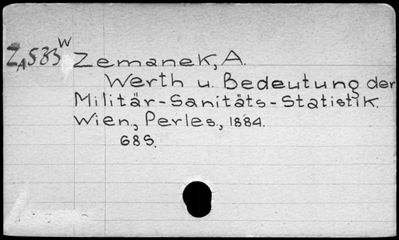 ZA533W Zemanek, A.
Werth u. Bedeutung der
Militär-Sanitäts-Statistik.
Wien, Perles, 1884.
68S.